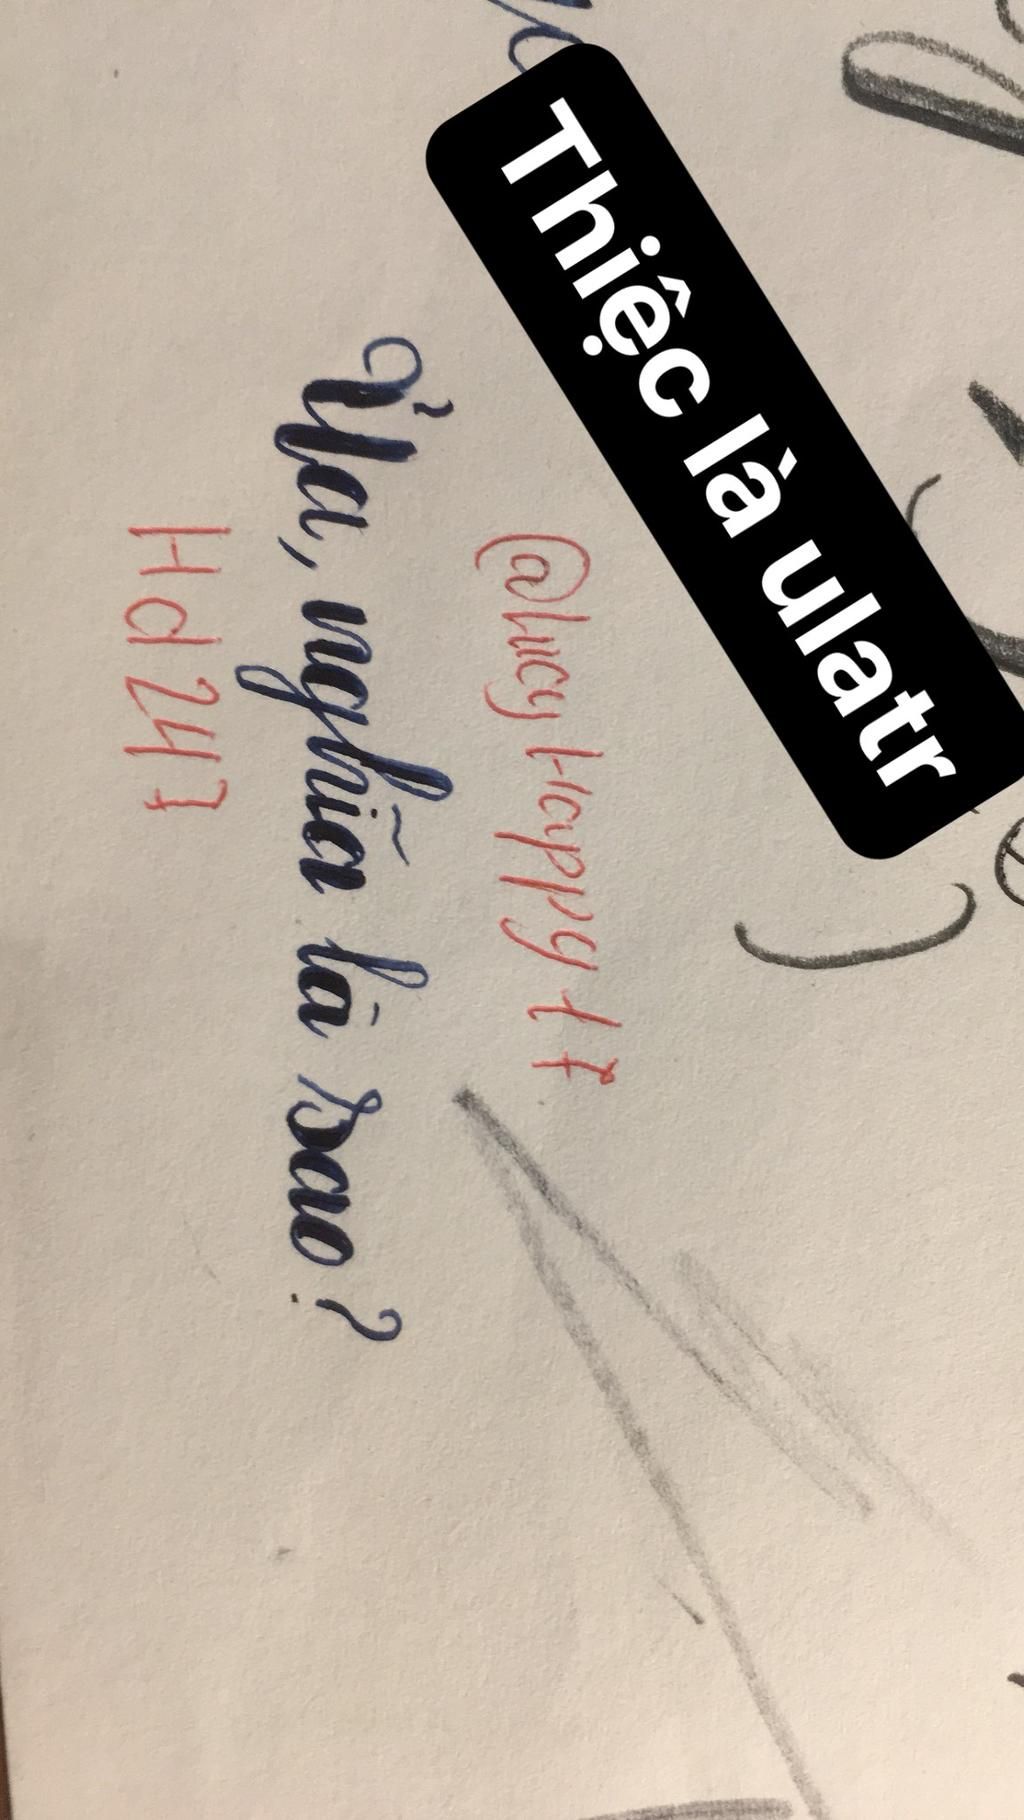 Thiệc là ulatr
@LucyHappy17
Ủa, nghĩa là sao?